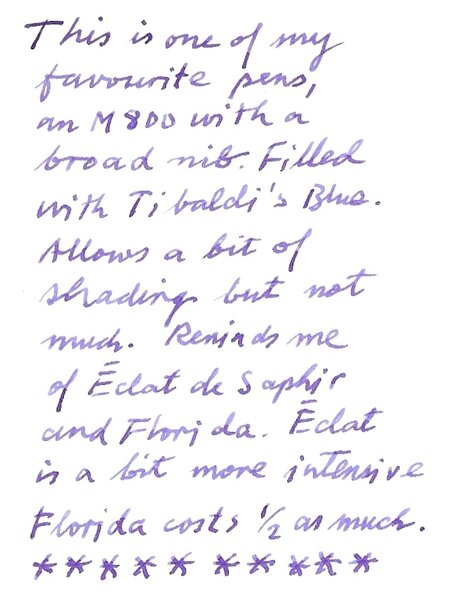 This is one of my
favourite pens,
an M800 with a
broad nib. Filled
with Tibaldi's Blue.
Allows a bit of
shading but not
much. Reminds me
of Éclat de Saphir
and Florida. Éclat
is a bit more intensive
Florida costs ½ as much.
* * * * * * * * * *